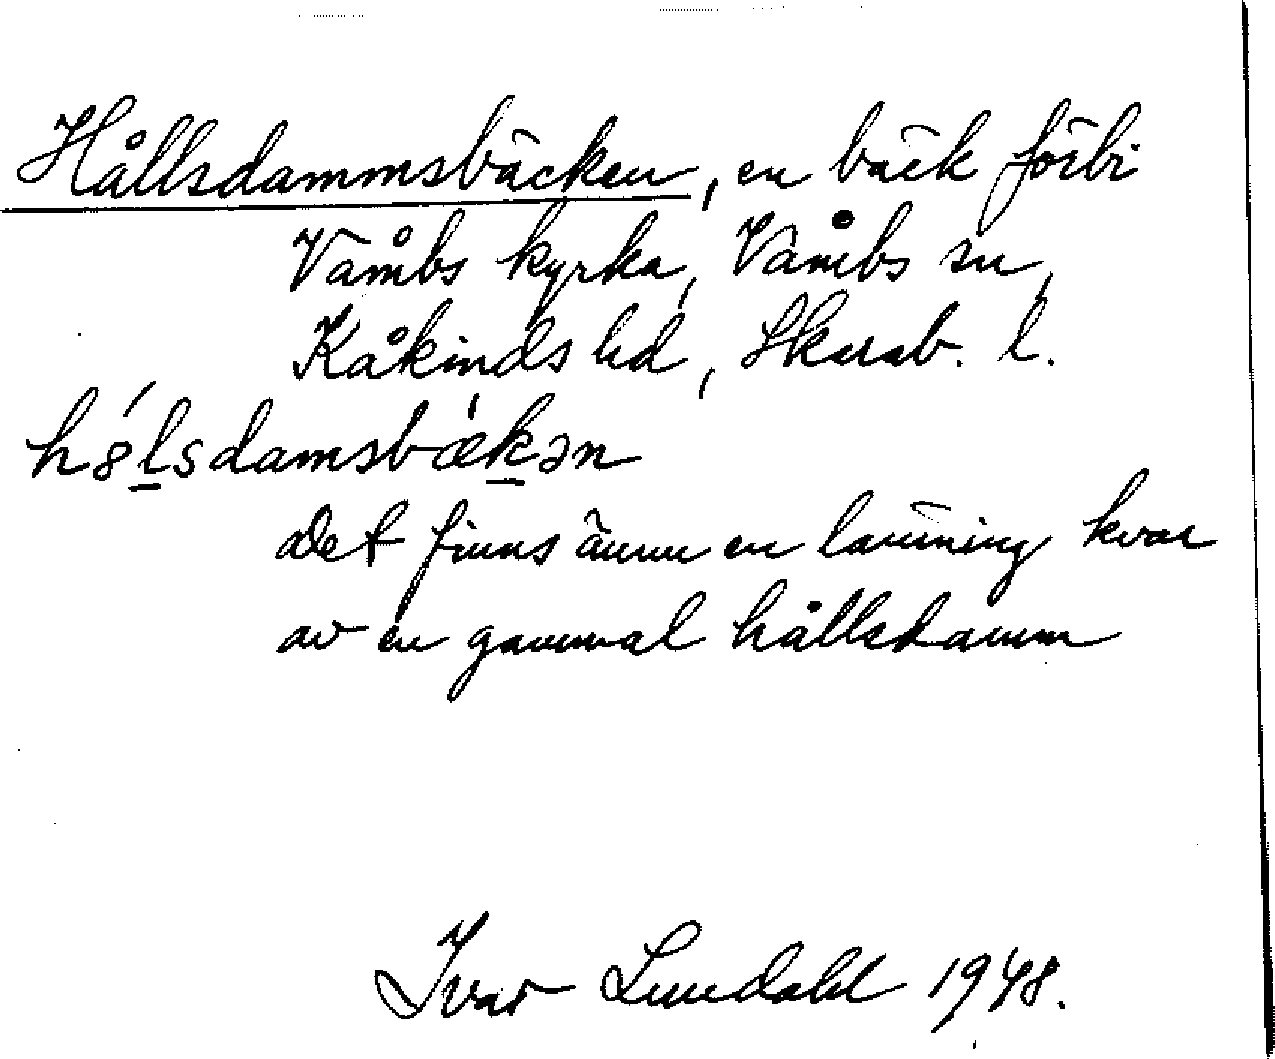 Hållsdammsbäcken, en bäck förbi
Våmbs kyrka, Våmbs sn,
Kåkinds hd, Skarab. l.
hȣ́l̲sdamsbæ̀k̲ən
Det finns ännu en lämning kvar
av en gammal hållsdamm
Ivar Lundahl 1948.